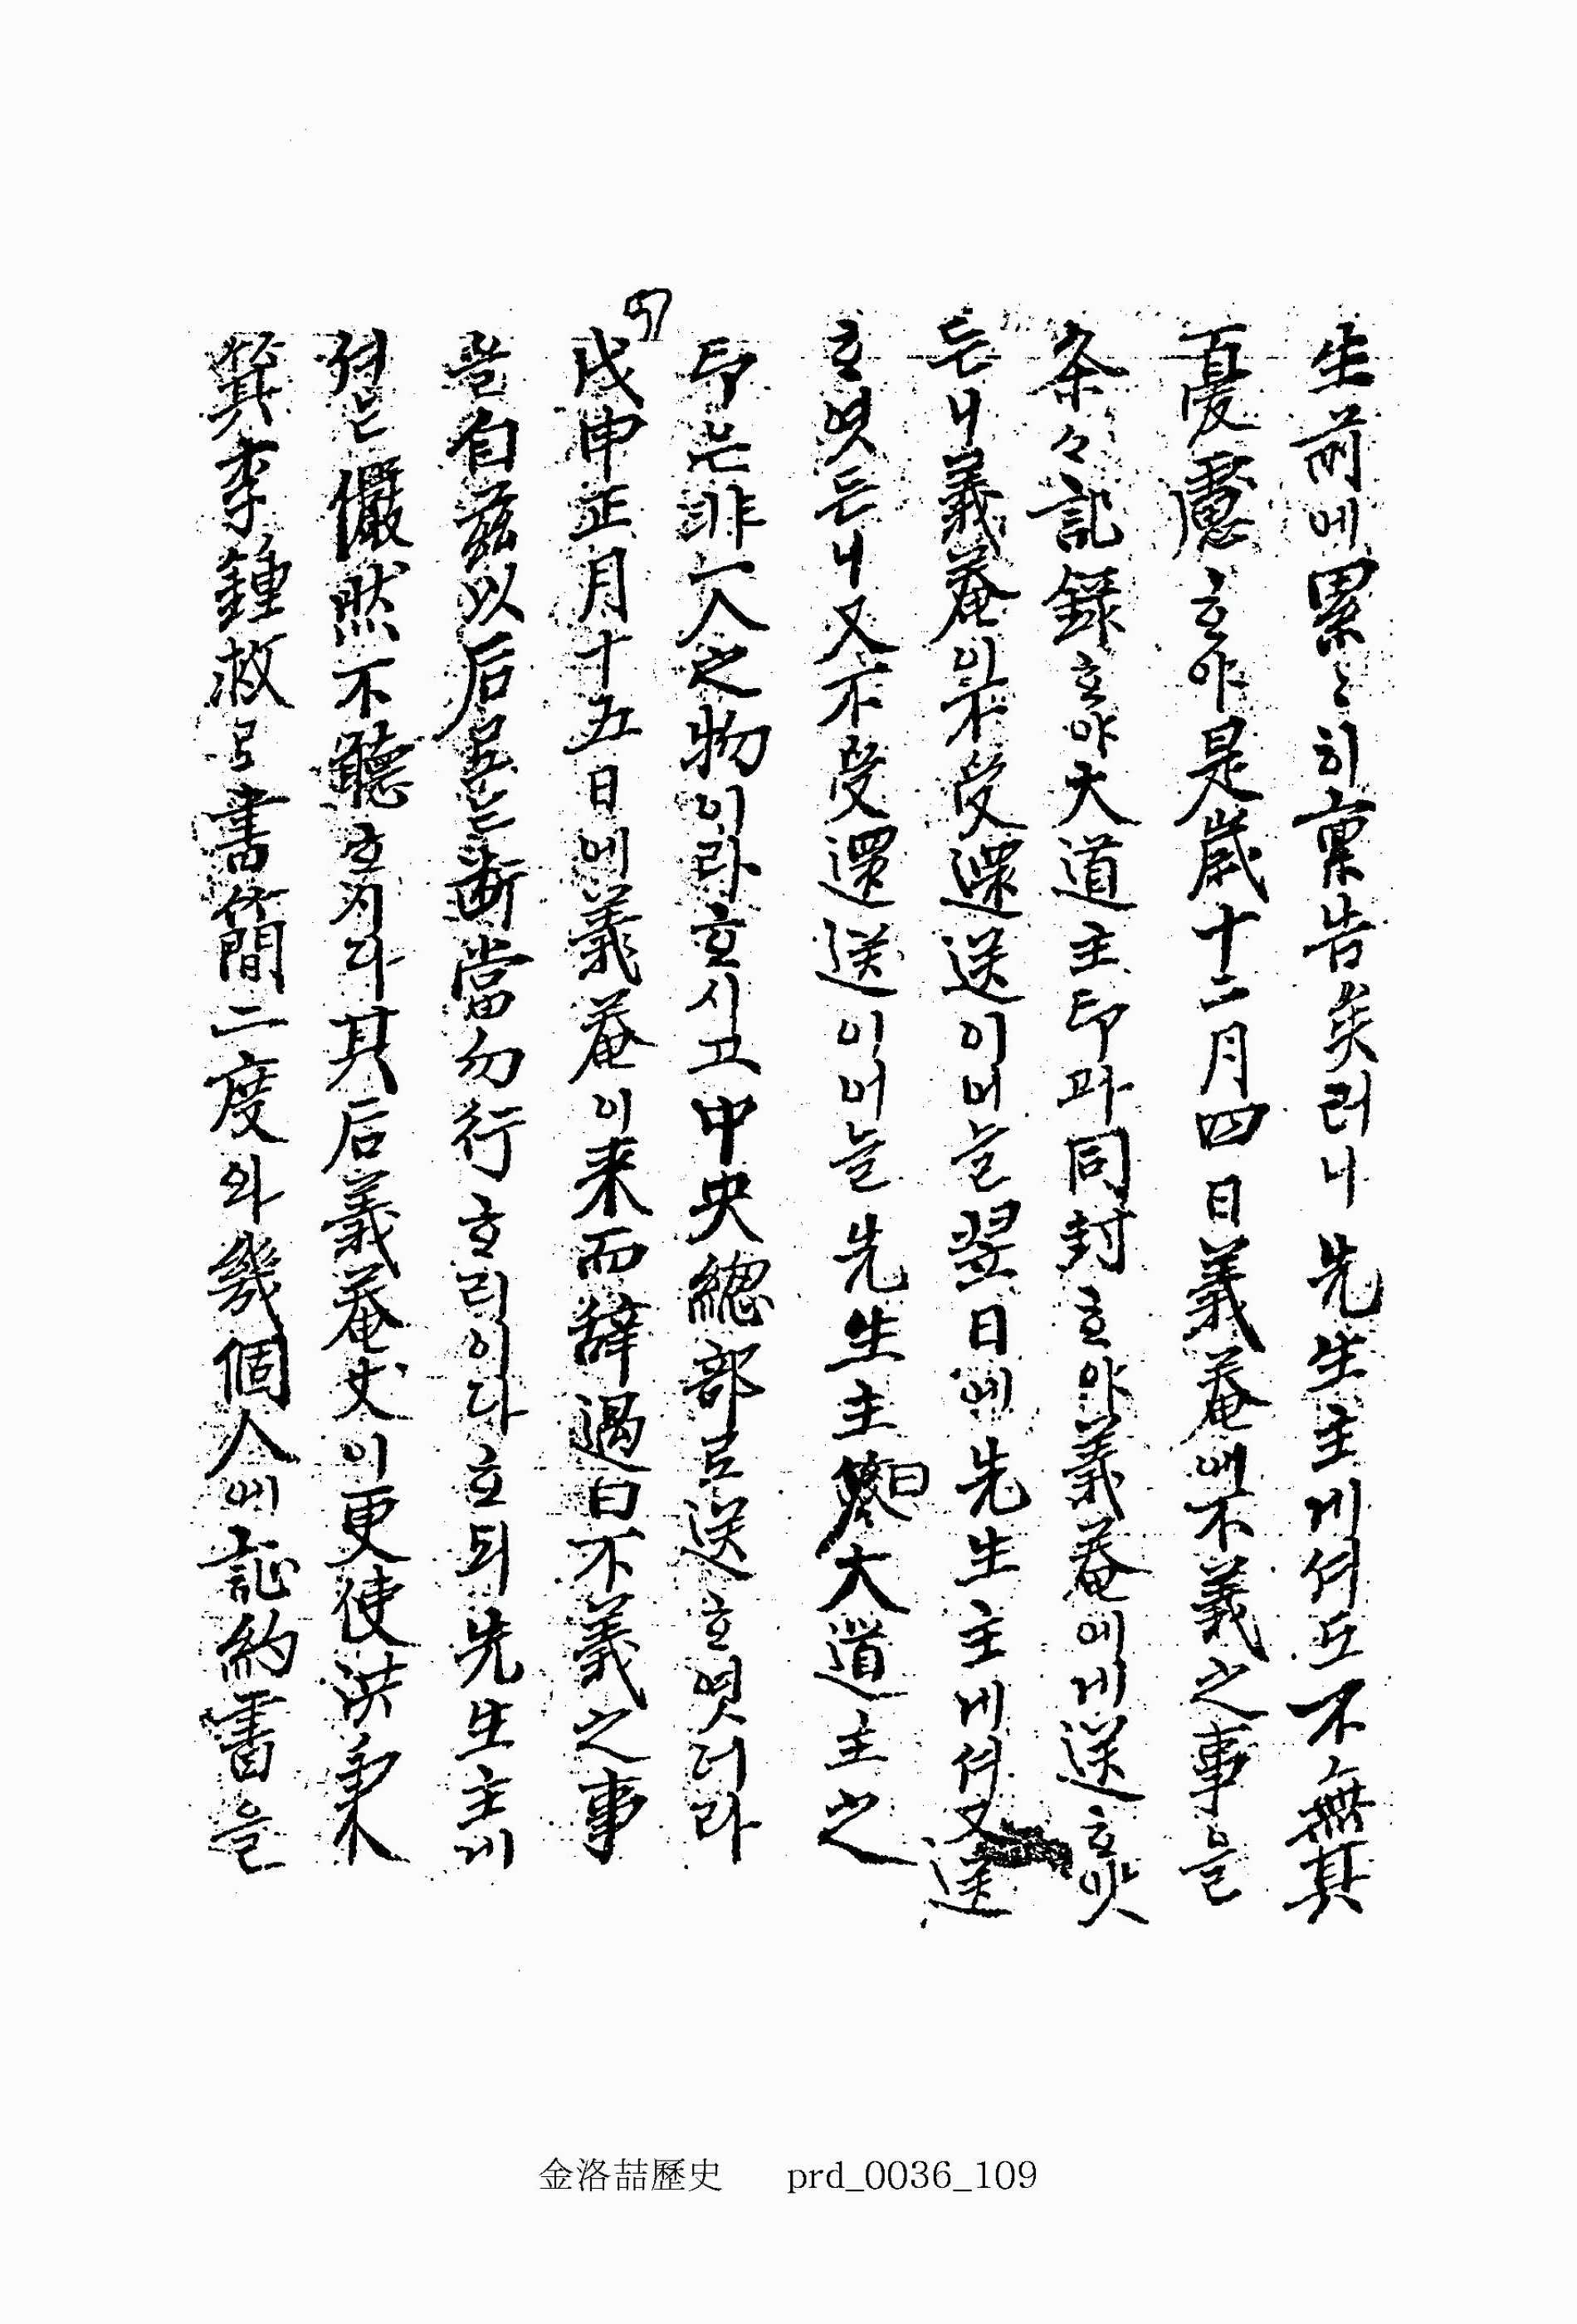 生前에累〻히稟告矣러니 先生主게셔도不無其
憂慮ᄒᆞ야是歲十二月四日義菴에不義之事을
条々記錄ᄒᆞ야大道主印과同封ᄒᆞ야義菴에게送ᄒᆞ얏
든니義菴이不受還送이머늘翌日에先生主게셔又送
ᄒᆞ엿든니又不受還送이머늘先生主曰大道主之
印는非一人之物이라ᄒᆞ시고中央總部로送ᄒᆞ엿더라
97
戊申正月十五日에義菴이来而辞過曰不義之事
을自玆以后로는断當勿行ᄒᆞ리이다ᄒᆞ되先生主게
셔는儼然不聽ᄒᆞ지라其后義菴丈이更使洪秉
箕李鍾淑으로書簡二度와幾個人에証約書을
金洛喆歷史 prd_0036_109